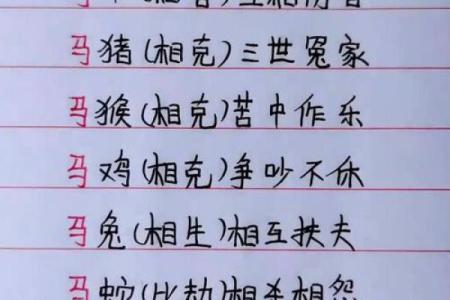 马猪(相克)三世冤家
马猴(相克)苦中作乐
马鸡(相克)争吵不休
马兔(相生)相互扶夫
马蛇(比劫)相杀相怨